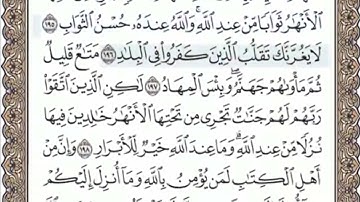 ٱلۡأَنۡهَٰرُ ثَوَابٗا مِّنۡ عِندِ ٱللَّهِۚ وَٱللَّهُ عِندَهُۥ حُسۡنُ ٱلثَّوَابِ ١٩٥
لَا يَغُرَّنَّكَ تَقَلُّبُ ٱلَّذِينَ كَفَرُواْ فِي ٱلۡبِلَٰدِ ١٩٦ مَتَٰعٞ قَلِيلٞ
ثُمَّ مَأۡوَىٰهُمۡ جَهَنَّمُۖ وَبِئۡسَ ٱلۡمِهَادُ ١٩٧ لَٰكِنِ ٱلَّذِينَ ٱتَّقَوۡاْ
رَبَّهُمۡ لَهُمۡ جَنَّٰتٞ تَجۡرِي مِن تَحۡتِهَا ٱلۡأَنۡهَٰرُ خَٰلِدِينَ فِيهَا
نُزُلٗا مِّنۡ عِندِ ٱللَّهِۗ وَمَا عِندَ ٱللَّهِ خَيۡرٞ لِّلۡأَبۡرَارِ ١٩٨ وَإِنَّ مِنۡ
أَهۡلِ ٱلۡكِتَٰبِ لَمَن يُؤۡمِنُ بِٱللَّهِ وَمَآ أُنزِلَ إِلَيۡكُمۡ